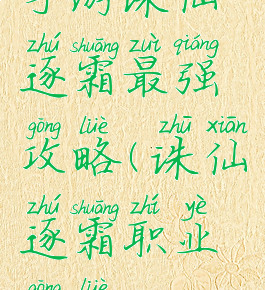 手游诛仙
zhú shuāng zuì qiáng
逐霜最强
gōng lüè zhū xiān
攻略(诛仙
zhú shuāng zhí yè
逐霜职业
gōng lüè